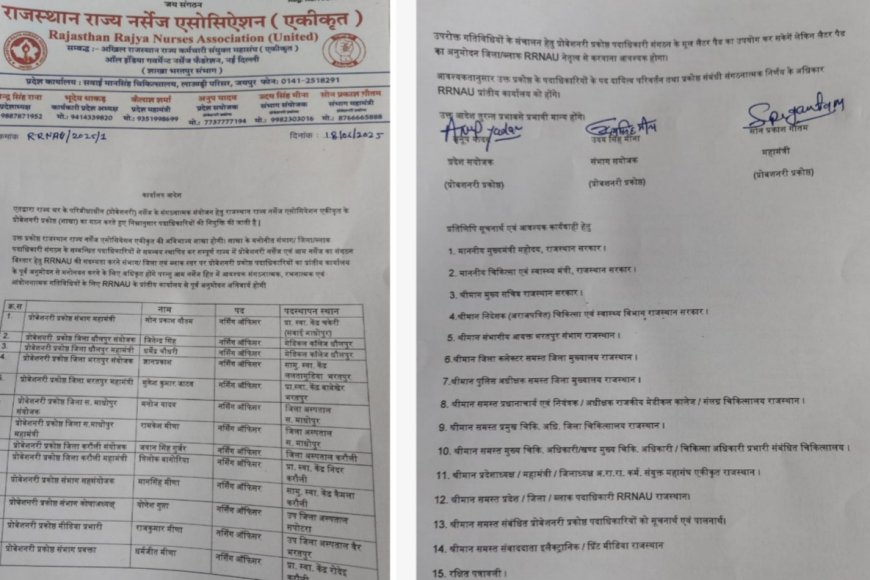 जय संगठन
राजस्थान राज्य नर्सेज एसोसिऐशन ( एकीकृत )
Rajasthan Rajya Nurses Association (United)
सम्बद्ध :- अखिल राजस्थान राज्य कर्मचारी संयुक्त महासंघ (एकीकृत)
ऑल इंडिया गवर्मेन्ट नर्सेज फैडरेशन, नई दिल्ली
( शाखा भरतपुर संभाग )
प्रदेश कार्यालय : सवाई मानसिंह चिकित्सालय, लाअर्ड़ी परिसर, जयपुर फोन: 0141-2518291
न्द्र सिंह राना भूदेव धाकड़ कैलाश शर्मा अनुप यादव उदय सिंह मीना सोन प्रकाश गौतम
प्रदेशाध्यक्ष कार्यकारी प्रदेश अध्यक्ष प्रदेश महामंत्री प्रदेश संयोजक संभाग संयोजक संभाग महामंत्री
9887871952 मो.: 9414339820 मो.: 9351098699 मो.: 7737777194 मो.: 9982303016 मो.: 8766665888
क्रमांक RRNAU/2025/1 दिनांक : 18/06/2025
कार्यालय आदेश
एतद्द्वारा राज्य भर के परिवीक्षाधीन (प्रोबेशनरी) नर्सेज के संगठनात्मक संयोजन हेतु राजस्थान राज्य नर्सेज एसोसिऐशन एकीकृत के
प्रोबेशनरी प्रकोष्ठ (शाखा) का गठन करते हुए निम्नानुसार पदाधिकारियों की नियुक्ति की जाती है |
उक्त प्रकोष्ठ राजस्थान राज्य नर्सेज एसोसिऐशन एकीकृत की अविभाज्य शाखा होगी। शाखा के मनोनीत संभाग/ जिला/ब्लाक
पदाधिकारी संगठन के सम्बन्धित पदाधिकारियों से समन्वय स्थापित कर सम्पूर्ण राज्य में प्रोबेशनरी नर्सेज एवं आम नर्सेज का संगठन
विस्तार हेतु RRNAU की सदस्यता करने संभाग/ जिला एवं ब्लाक स्तर पर प्रोबेशनरी प्रकोष्ठ पदाधिकारियों का प्रांतीय कार्यालय
के पूर्व अनुमोदन से मनोनयन करने के लिए अधिकृत होंगे परन्तु आम नर्सेज हित में आवश्यक संगठनात्मक, रचनात्मक एवं
आंदोलनात्मक गतिविधियों के लिए RRNAU के प्रांतीय कार्यालय से पूर्व अनुमोदन अनिवार्य होगी
क्र.स नाम पद पदस्थापन स्थान
1. प्रोबेशनरी प्रकोष्ठ संभाग महामंत्री सोन प्रकाश गौतम नर्सिंग ऑफिसर प्रा. स्वा. केंद्र चकेरी
(सवाई माधोपुर)
2. प्रोबेशनरी प्रकोष्ठ जिला धौलपुर संयोजक जितेन्द्र सिंह नर्सिंग ऑफिसर मेडिकल कॉलेज धौलपुर
3. प्रोबेशनरी प्रकोष्ठ जिला धौलपुर महामंत्री धर्मेन्द्र चौधरी नर्सिंग ऑफिसर मेडिकल कॉलेज धौलपुर
4. प्रोबेशनरी प्रकोष्ठ जिला भरतपुर संयोजक ज्ञानप्रकाश नर्सिंग ऑफिसर सामु. स्वा. केंद्र
भरतपुर
प्रोबेशनरी प्रकोष्ठ जिला भरतपुर महामंत्री मुकेश कुमार जाटव नर्सिंग ऑफिसर प्रा.स्वा. केंद्र
भरतपुर
प्रोबेशनरी प्रकोष्ठ जिला स. माधोपुर संयोजक मनोज यादव नर्सिंग ऑफिसर जिला अस्पताल
स. माधोपुर
प्रोबेशनरी प्रकोष्ठ जिला स.माधोपुर महामंत्री रामकेश मीणा नर्सिंग ऑफिसर जिला अस्पताल
स. माधोपुर
प्रोबेशनरी प्रकोष्ठ जिला करौली संयोजक जवान सिंह गुर्जर नर्सिंग ऑफिसर जिला अस्पताल करौली
प्रोबेशनरी प्रकोष्ठ जिला करौली महामंत्री तिलोक बागोरिया नर्सिंग ऑफिसर प्रा. स्वा. केंद्र निदर
करौली
प्रोबेशनरी प्रकोष्ठ संभाग सहसंयोजक मानसिंह मीणा नर्सिंग ऑफिसर सामु. स्वा. केंद्र कैमला
करौली
प्रोबेशनरी प्रकोष्ठ संभाग कोषाध्यक्ष योगेश गुप्ता नर्सिंग ऑफिसर उप जिला अस्पताल
सपोटरा
प्रोबेशनरी प्रकोष्ठ मीडिया प्रभारी राजकुमार मीणा नर्सिंग ऑफिसर उप जिला अस्पताल वैर
भरतपुर
प्रोबेशनरी प्रकोष्ठ संभाग प्रवक्ता धर्मजीत मीणा नर्सिंग ऑफिसर प्रा. स्वा. केंद्र
करौली
उपरोक्त गतिविधियों के संचालन हेतु प्रोबेशनरी प्रकोष्ठ पदाधिकारी संगठन के मूल लैटर पैड का उपयोग कर सकेंगे लेकिन लैटर पैड
का अनुमोदन जिला/ब्लाक RRNAU नेतृत्व से करवाना आवश्यक होगा।
आवश्यकतानुसार उक्त प्रकोष्ठ के पदाधिकारियों के पद दायित्व परिवर्तन तथा प्रकोष्ठ संबंधी संगठनात्मक निर्णय के अधिकार
RRNAU प्रांतीय कार्यालय को होंगे।
उक्त आदेश तुरन्त प्रभावसे प्रभावी मान्य होंगे।
Anup yadav उदयसिंह मीना
अनूप यादव उदय सिंह मीना सोन प्रकाश गौतम
प्रदेश संयोजक संभाग संयोजक महामंत्री
(प्रोबशनरी प्रकोष्ठ) (प्रोबशनरी प्रकोष्ठ) (प्रोबशनरी प्रकोष्ठ)
प्रतिलिपि सूचनार्थ एवं आवश्यक कार्यवाही हेतु
1. माननीय मुख्यमंत्री महोदय, राजस्थान सरकार।
2. माननीय चिकित्सा एवं स्वास्थ्य मंत्री, राजस्थान सरकार।
3. श्रीमान मुख्य सचिव राजस्थान सरकार।
4. श्रीमान निदेशक (अराजपत्रित) चिकित्सा एवं स्वास्थ्य विभाग राजस्थान सरकार।
5. श्रीमान संभागीय आयुक्त भरतपुर संभाग राजस्थान।
6. श्रीमान जिला कलेक्टर समस्त जिला मुख्यालय राजस्थान।
7. श्रीमान पुलिस अधीक्षक समस्त जिला मुख्यालय राजस्थान।
8. श्रीमान समस्त प्रधानाचार्य एवं नियंत्रक / अधीक्षक राजकीय मेडीकल कालेज / संलग्न चिकित्सालय राजस्थान।
9. श्रीमान समस्त प्रमुख चिकि. अधि. जिला चिकित्सालय राजस्थान।
10. श्रीमान समस्त मुख्य चिकि. अधिकारी/खण्ड मुख्य चिकि. अधिकारी / चिकित्सा अधिकारी प्रभारी संबंधित चिकित्सालय।
11. श्रीमान प्रदेशाध्यक्ष / महामंत्री / जिलाध्यक्ष अ.रा.रा. कर्म. संयुक्त महासंघ एकीकृत राजस्थान।
12. श्रीमान समस्त प्रदेश / जिला / ब्लाक पदाधिकारी RRNAU राजस्थान।
13. श्रीमान समस्त संबंधित प्रोबेशनरी प्रकोष्ठ पदाधिकारियों को सूचनार्थ एवं पालनार्थ।
14. श्रीमान समस्त संवाददाता इलैक्ट्रानिक / प्रिंट मीडिया राजस्थान
15. रक्षित पत्रावली।